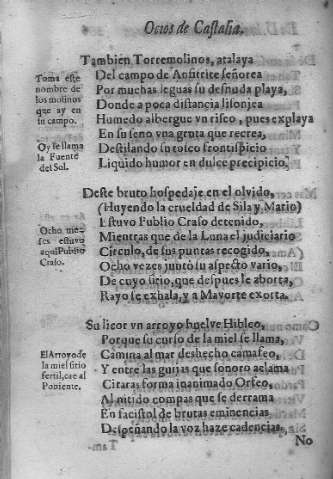 Ocios de Castalia.
Tambien Torremolinos, atalaya
Del campo de Anfitrite señorea
Por muchas leguas su desnuda playa,
Donde a poca distancia lisonjea
Humedo albergue vn risco, pues explaya
En su seno vna gruta que recrea,
Destilando su tosco frontispicio
Liquido humor en dulce precipicio.
Toma este
nombre de
los molinos
que ay en
su campo.
Oy se llama
la Fuente
del Sol.
Deste bruto hospedaje en el olvido,
(Huyendo la crueldad de Sila y Mario)
Estuvo Publio Craso detenido,
Mientras que de la Luna el judiciario
Circulo, de sus puntas recogido,
Ocho vezes juntò su aspecto vario,
De cuyo sitio, que despues le aborta,
Rayo se exhala, y a Mavorte exorta.
Ocho me-
ses estuvo
aqui Publio
Craso.
Su licor vn arroyo buelve Hibleo,
Porque su curso de la miel se llama,
Camina al mar deshecho camafeo,
Y entre las guijas que sonoro aclama
Citaras forma inanimado Orfeo,
Al nitido compas que se derrama
En facistol de brutas eminencias
Despeñando la voz haze cadencias.
El Arroyo de
la miel sitio
fertil, cae al
Poniente.
No